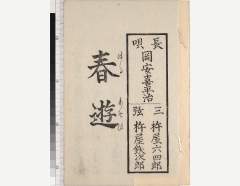 長唄
岡安喜平治
三弦
杵屋六四郎
杵屋鉄次郎
春遊